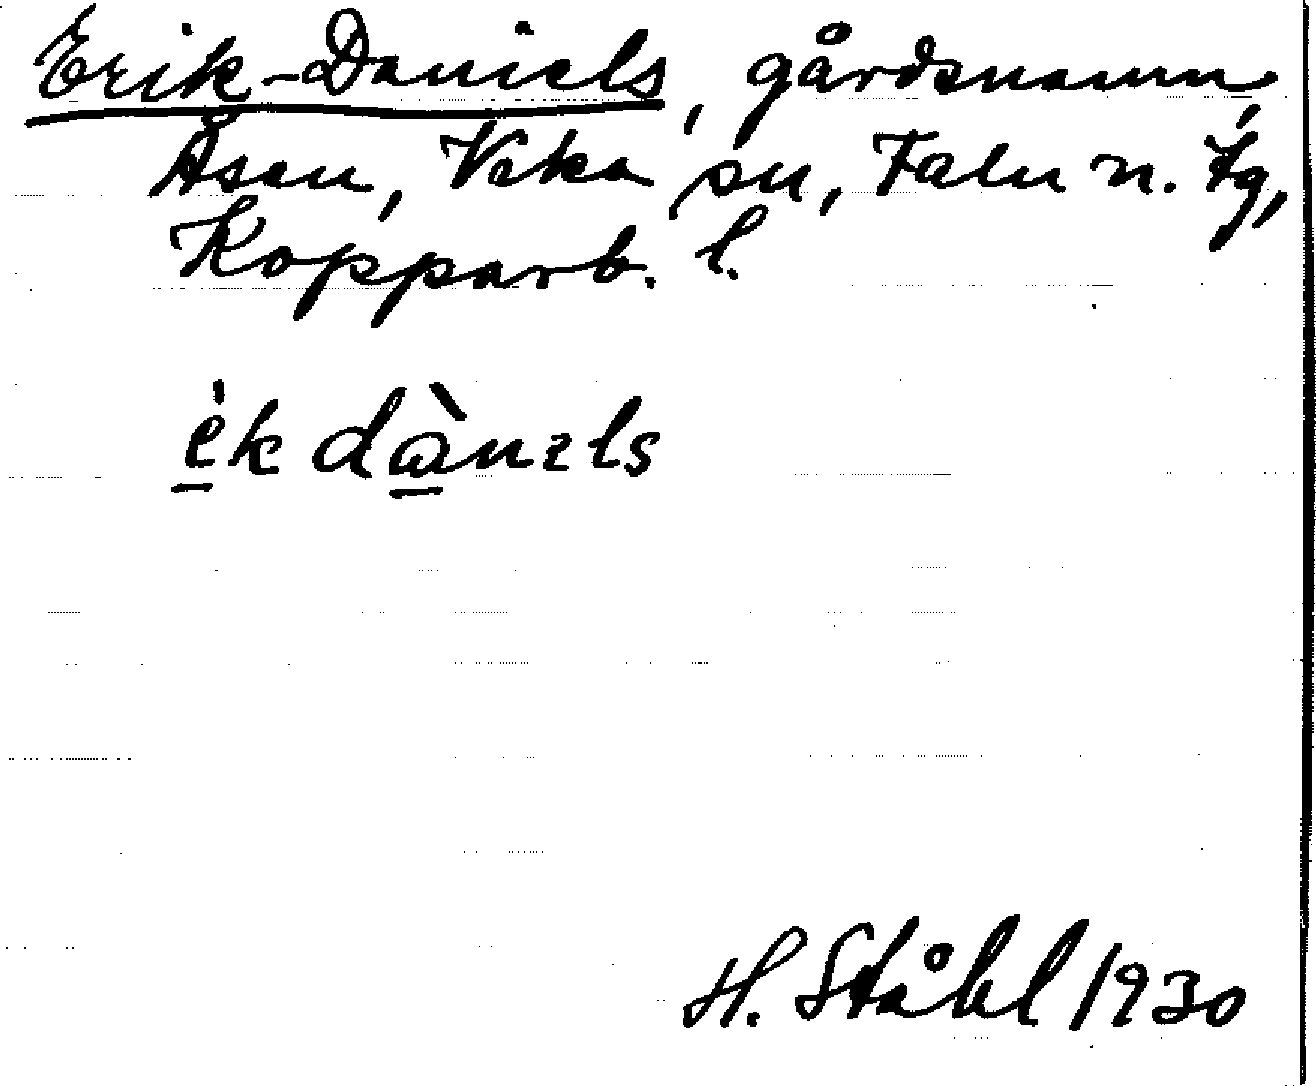 Erik-Daniels, gårdsnamn,
Åsen, Vika sn, Falu n. tg,
Kopparb. l.
èk dànɛls
H. Ståhl 1930